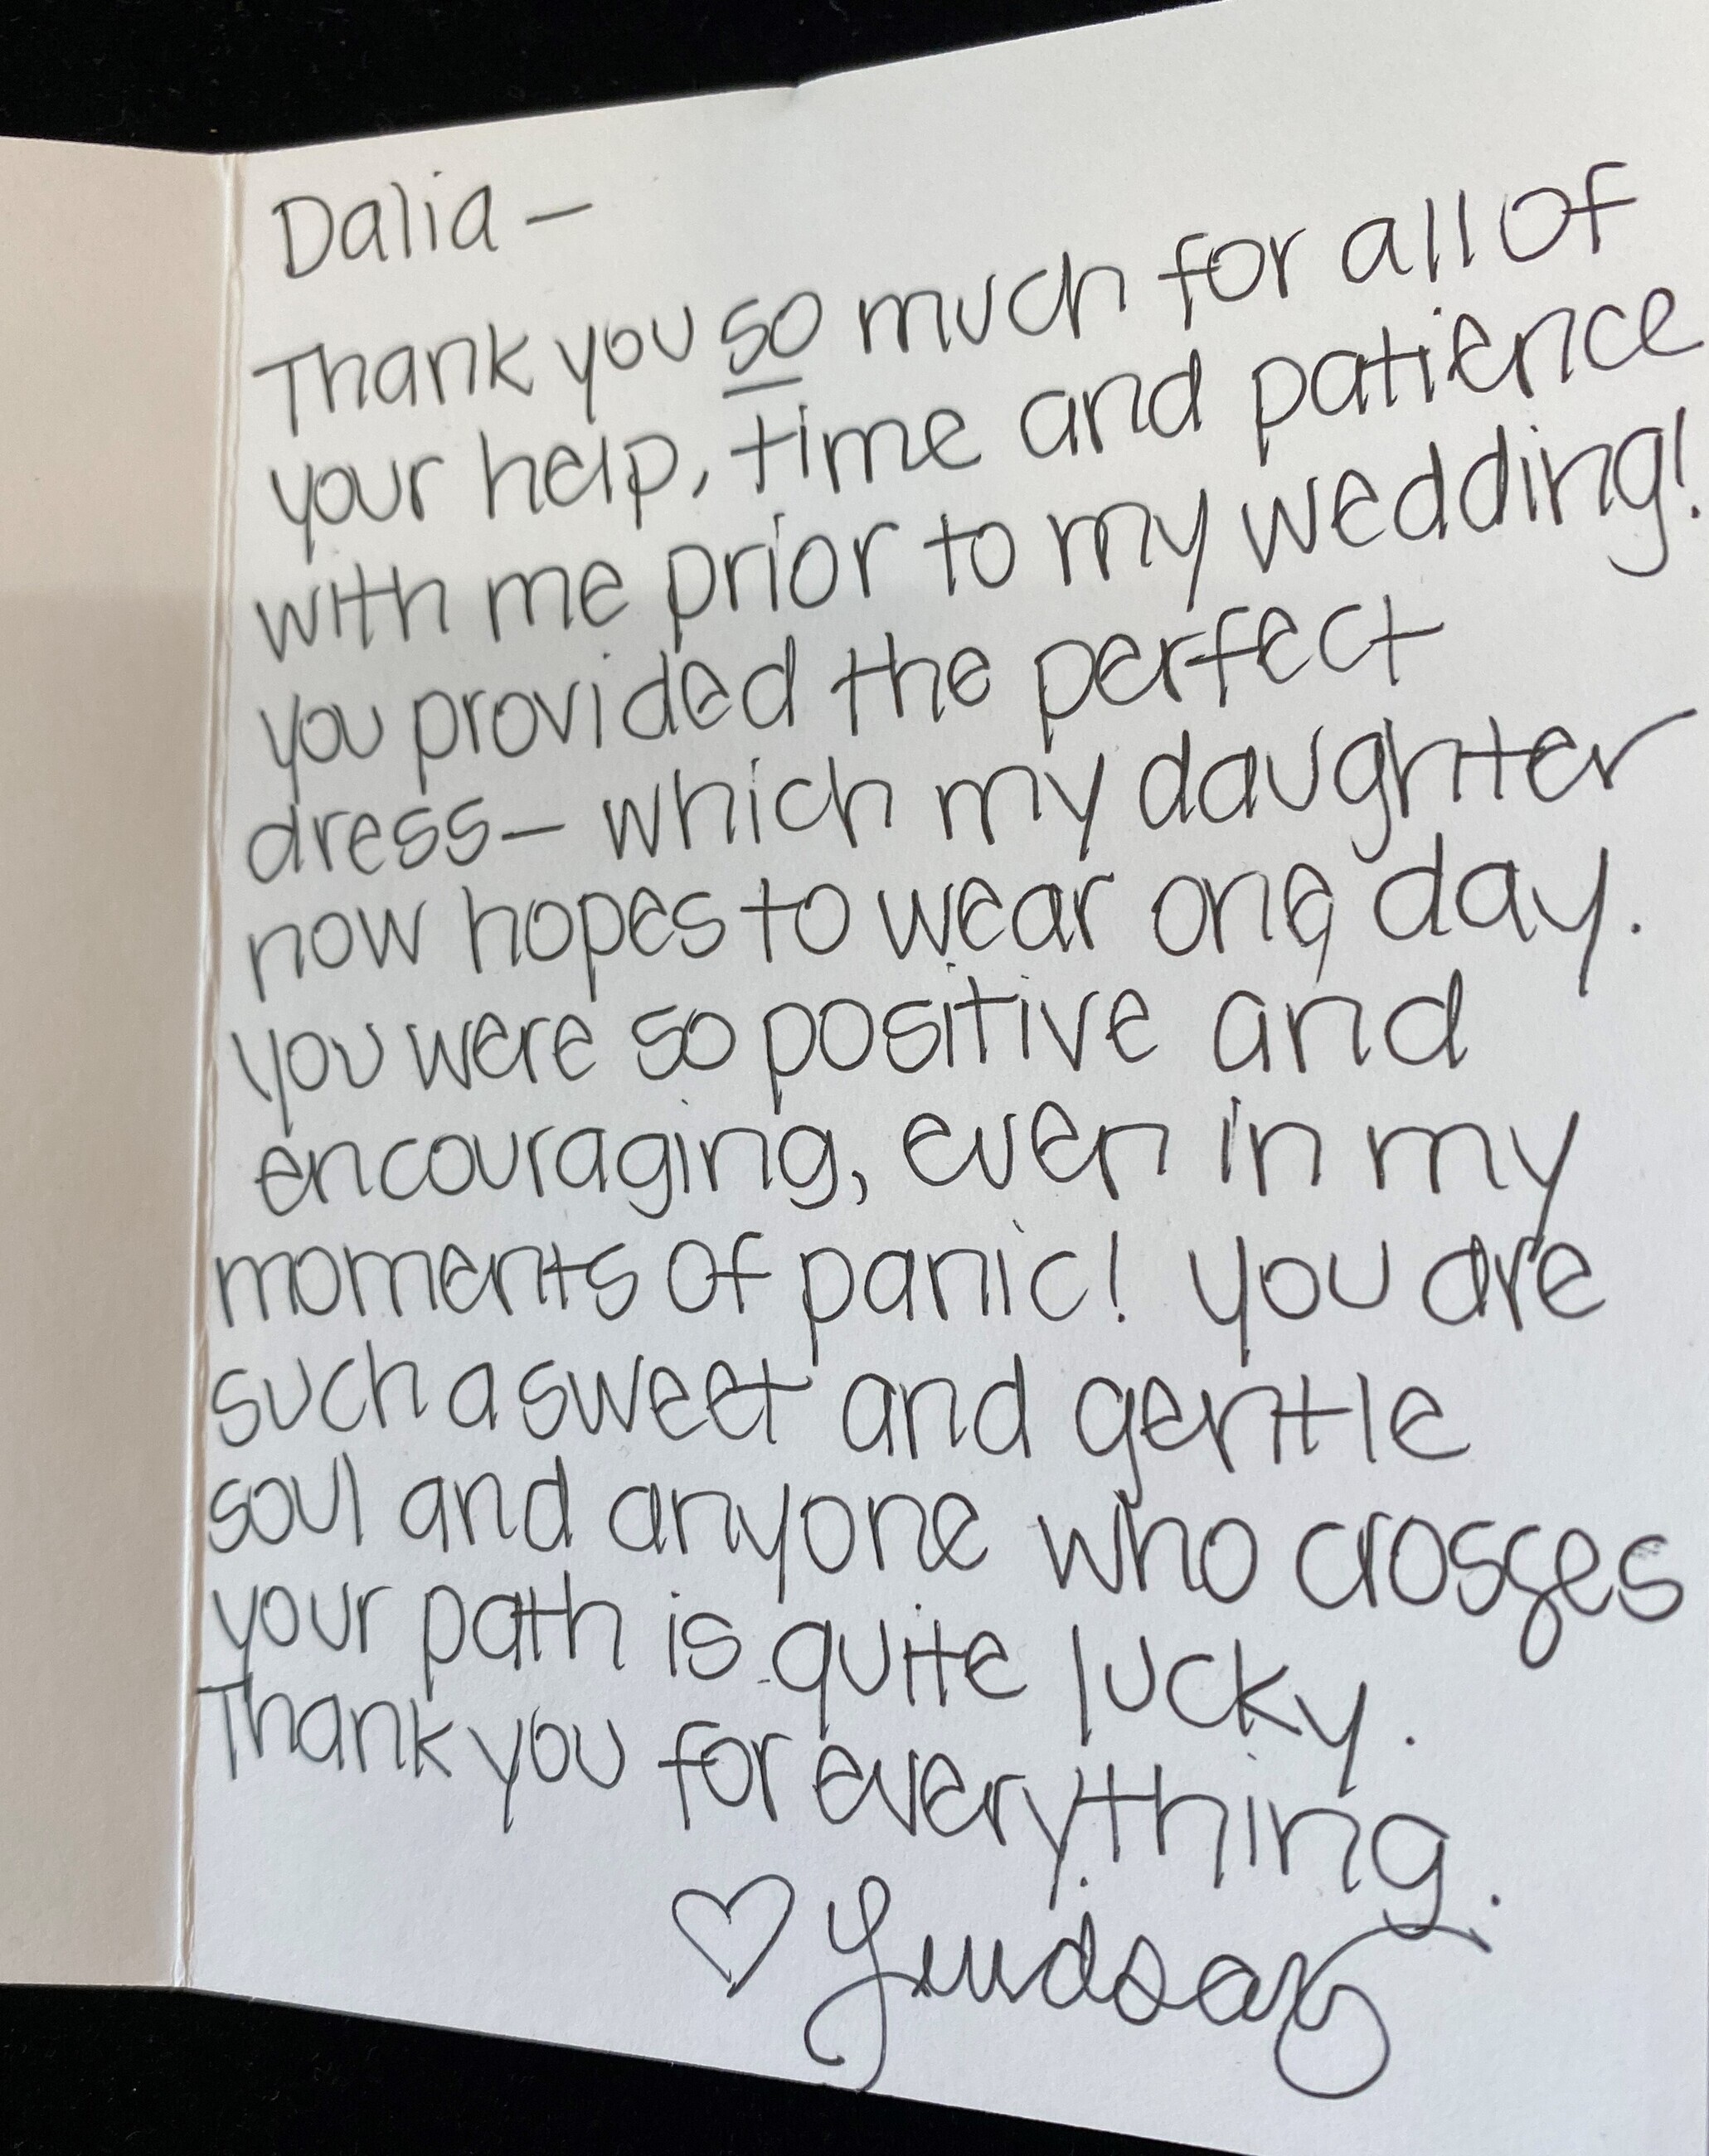 Dalia —
Thank you so much for all of
your help, time and patience
with me prior to my wedding!
you provided the perfect
dress — which my daughter
now hopes to wear one day.
you were so positive and
encouraging, even in my
moments of panic! you are
such a sweet and gentle
soul and anyone who crosses
your path is quite lucky.
Thank you for everything.
♡ Lindsay